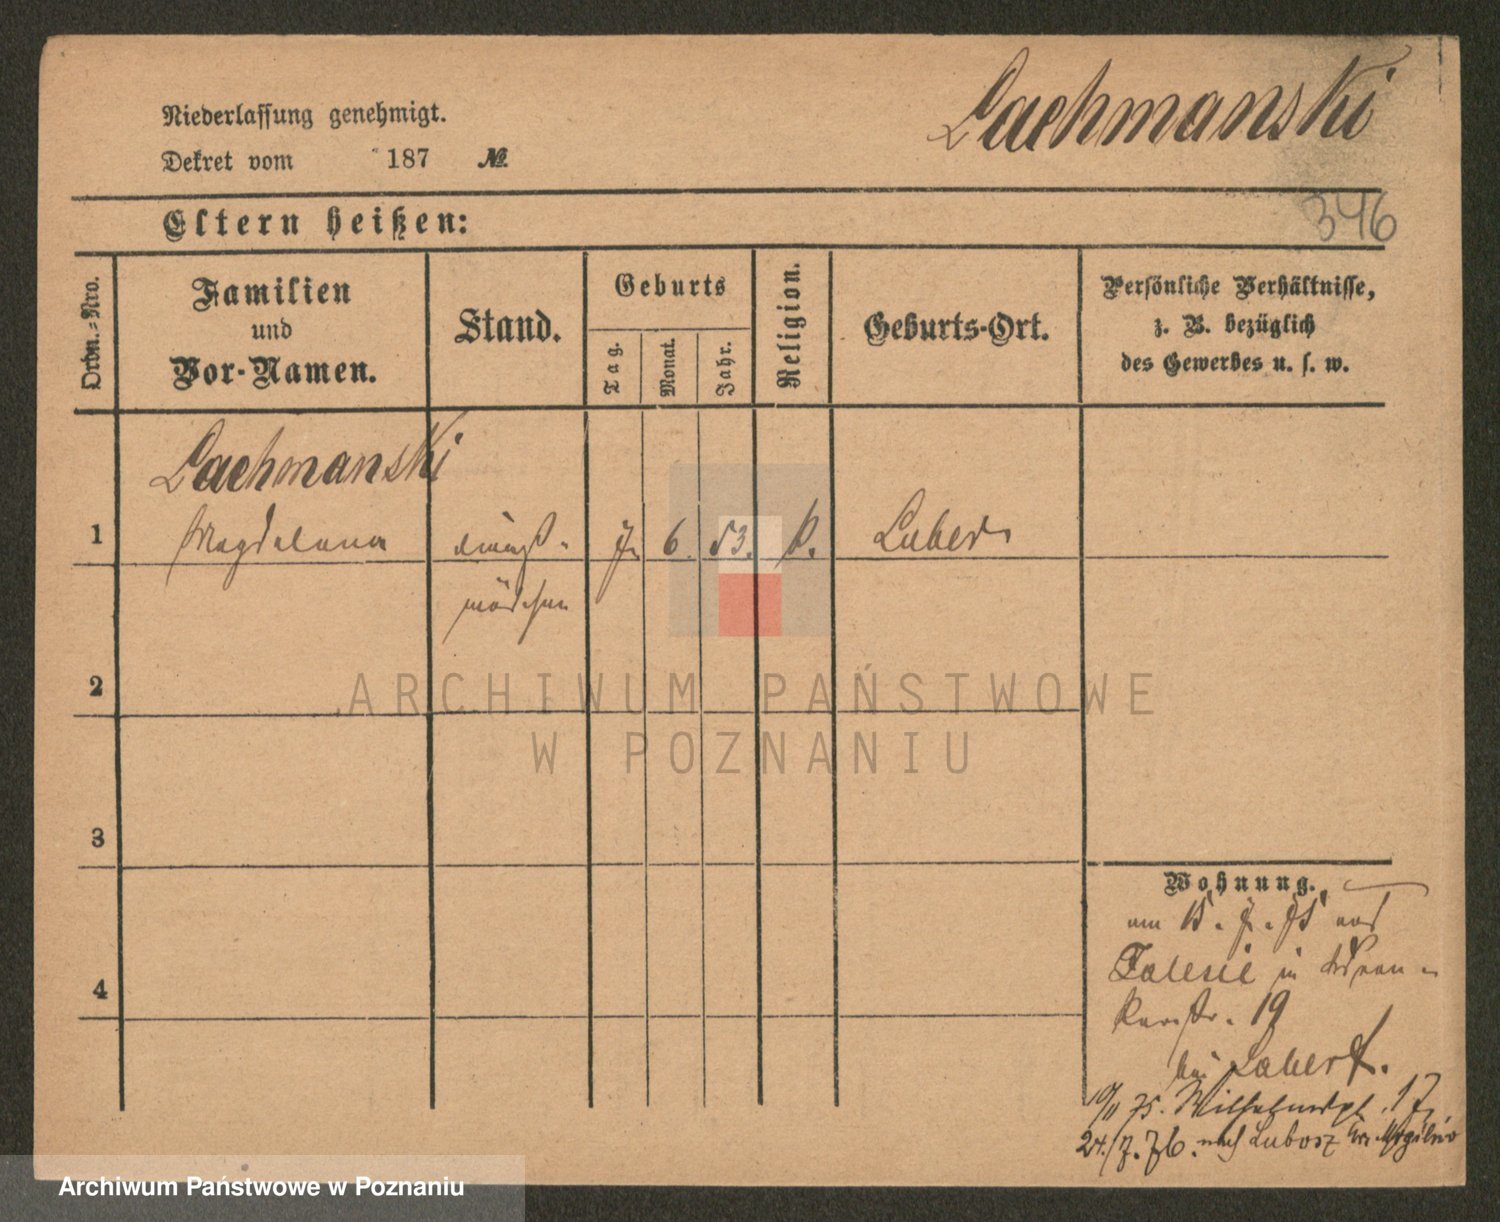 Lachmanski
Niederlassung genehmigt.
Dekret vom 187 №
346
Eltern heißen:
Ordn.=Nro.
Familien
und
Vor-Namen.
Stand.
Geburts
Tag.
Monat.
Jahr.
Religion.
Geburts-Ort.
Persönliche Verhältnisse,
z. B. bezüglich
des Gewerbes u. s. w.
Lachmanski
1 Magdalena Dienst- 7. 6. 53. k.
mädchen
2
ARCHIWUM PAŃSTWOWE
W POZNANIU
3
Wohnung.
am 15. 7. 75 aus
Zalesie in
4
19
bei
10/11 75. Wilhelmspl. 17.
24./7. 76. nach Lubosz
Archiwum Państwowe w Poznaniu